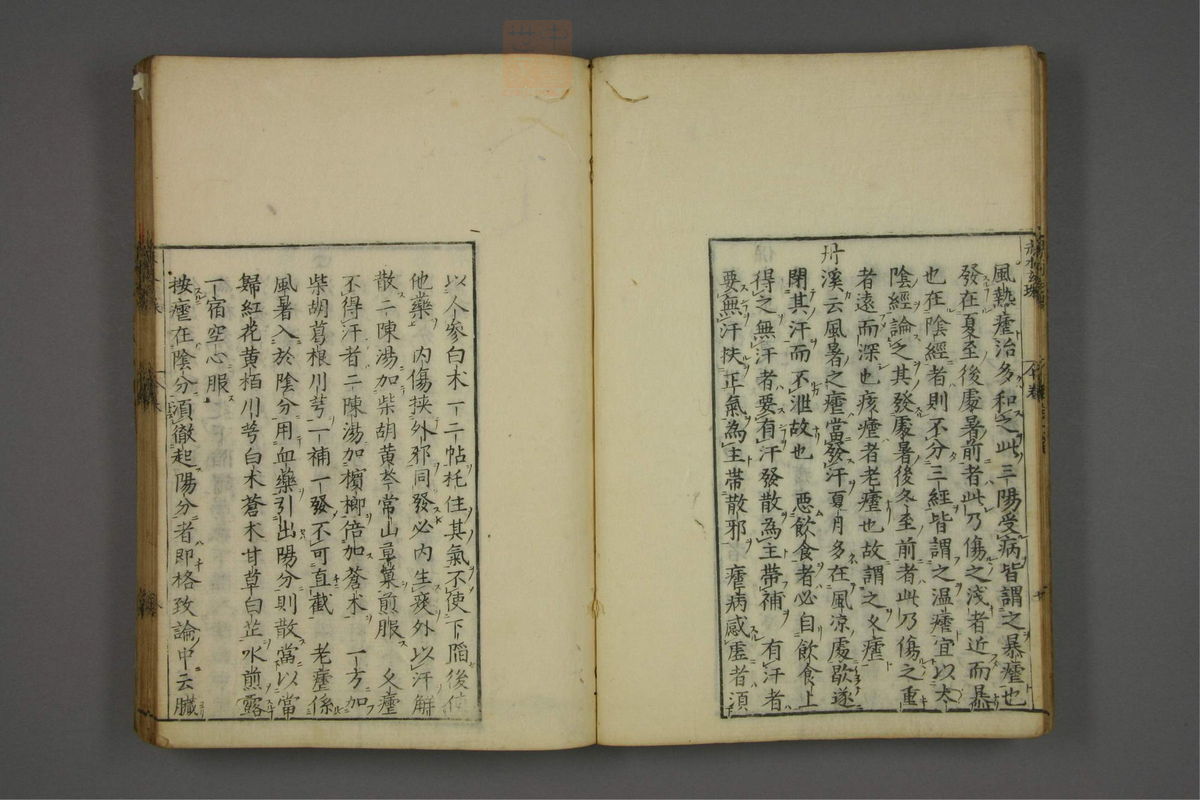 風熱瘧治多和之此三陽受病皆謂之暴瘧也
發在夏至後處暑前者此乃傷之浅者近而暴
也在陰經者則不分三經皆謂之温瘧宜以太
陰經論之其發處暑後冬至前者此乃傷之重
者遠而深也痎瘧者老瘧也故謂之久瘧
丹溪云風暑之瘧當發汗夏月多在風凉處歇遂
閉其汗而不泄故也　惡飲食者必自飲食上
得之無汗者要有汗發散為主帶補　有汗者
要無汗扶正氣為主帶散邪　瘧病感虚者須
以人參白木一二帖托住其氣不使下陥後使
他藥　内傷挟外邪同發必内生痰外以汗解
散二陳湯加柴胡黄芩常山草菓煎服　久瘧
不得汗者二陳湯加檳榔倍加蒼木　一方加
柴胡葛根川芎一補一發不可直截　老瘧係
風暑入於陰分用血藥引出陽分則散當以當
歸紅花黄栢川芎白木蒼木甘草白芷水煎露
一宿空心服
按瘧在陰分須徹起陽分者即格致論中云臓